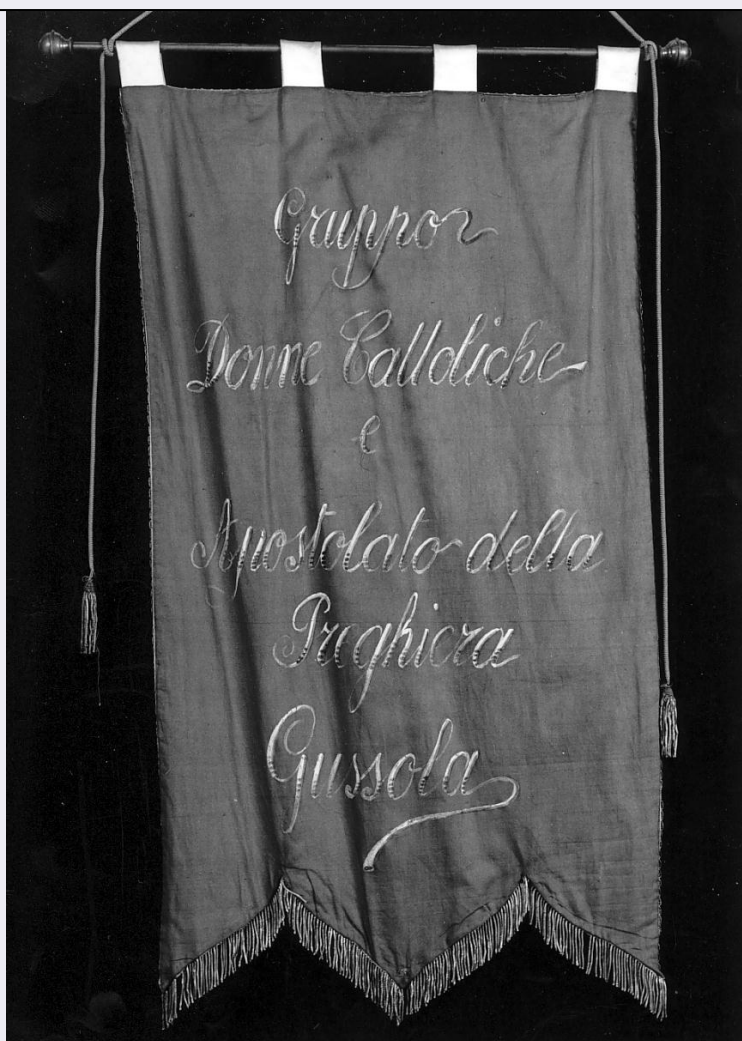 Gruppo
Donne Cattoliche
e
Apostolato della
Preghiera
Gussola